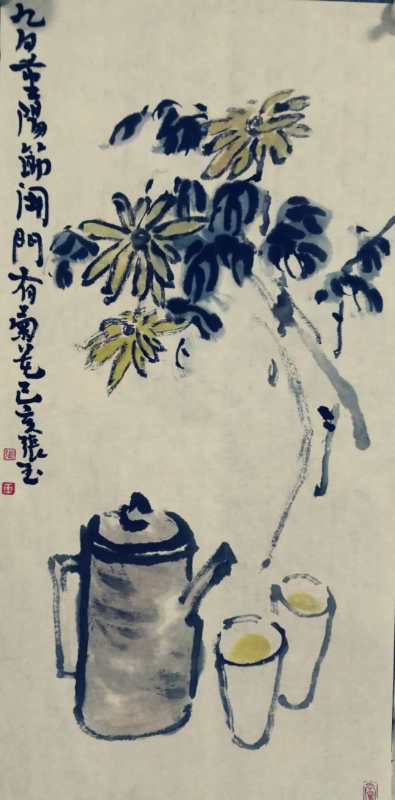 九日重陽節開門有菊花己亥張玉